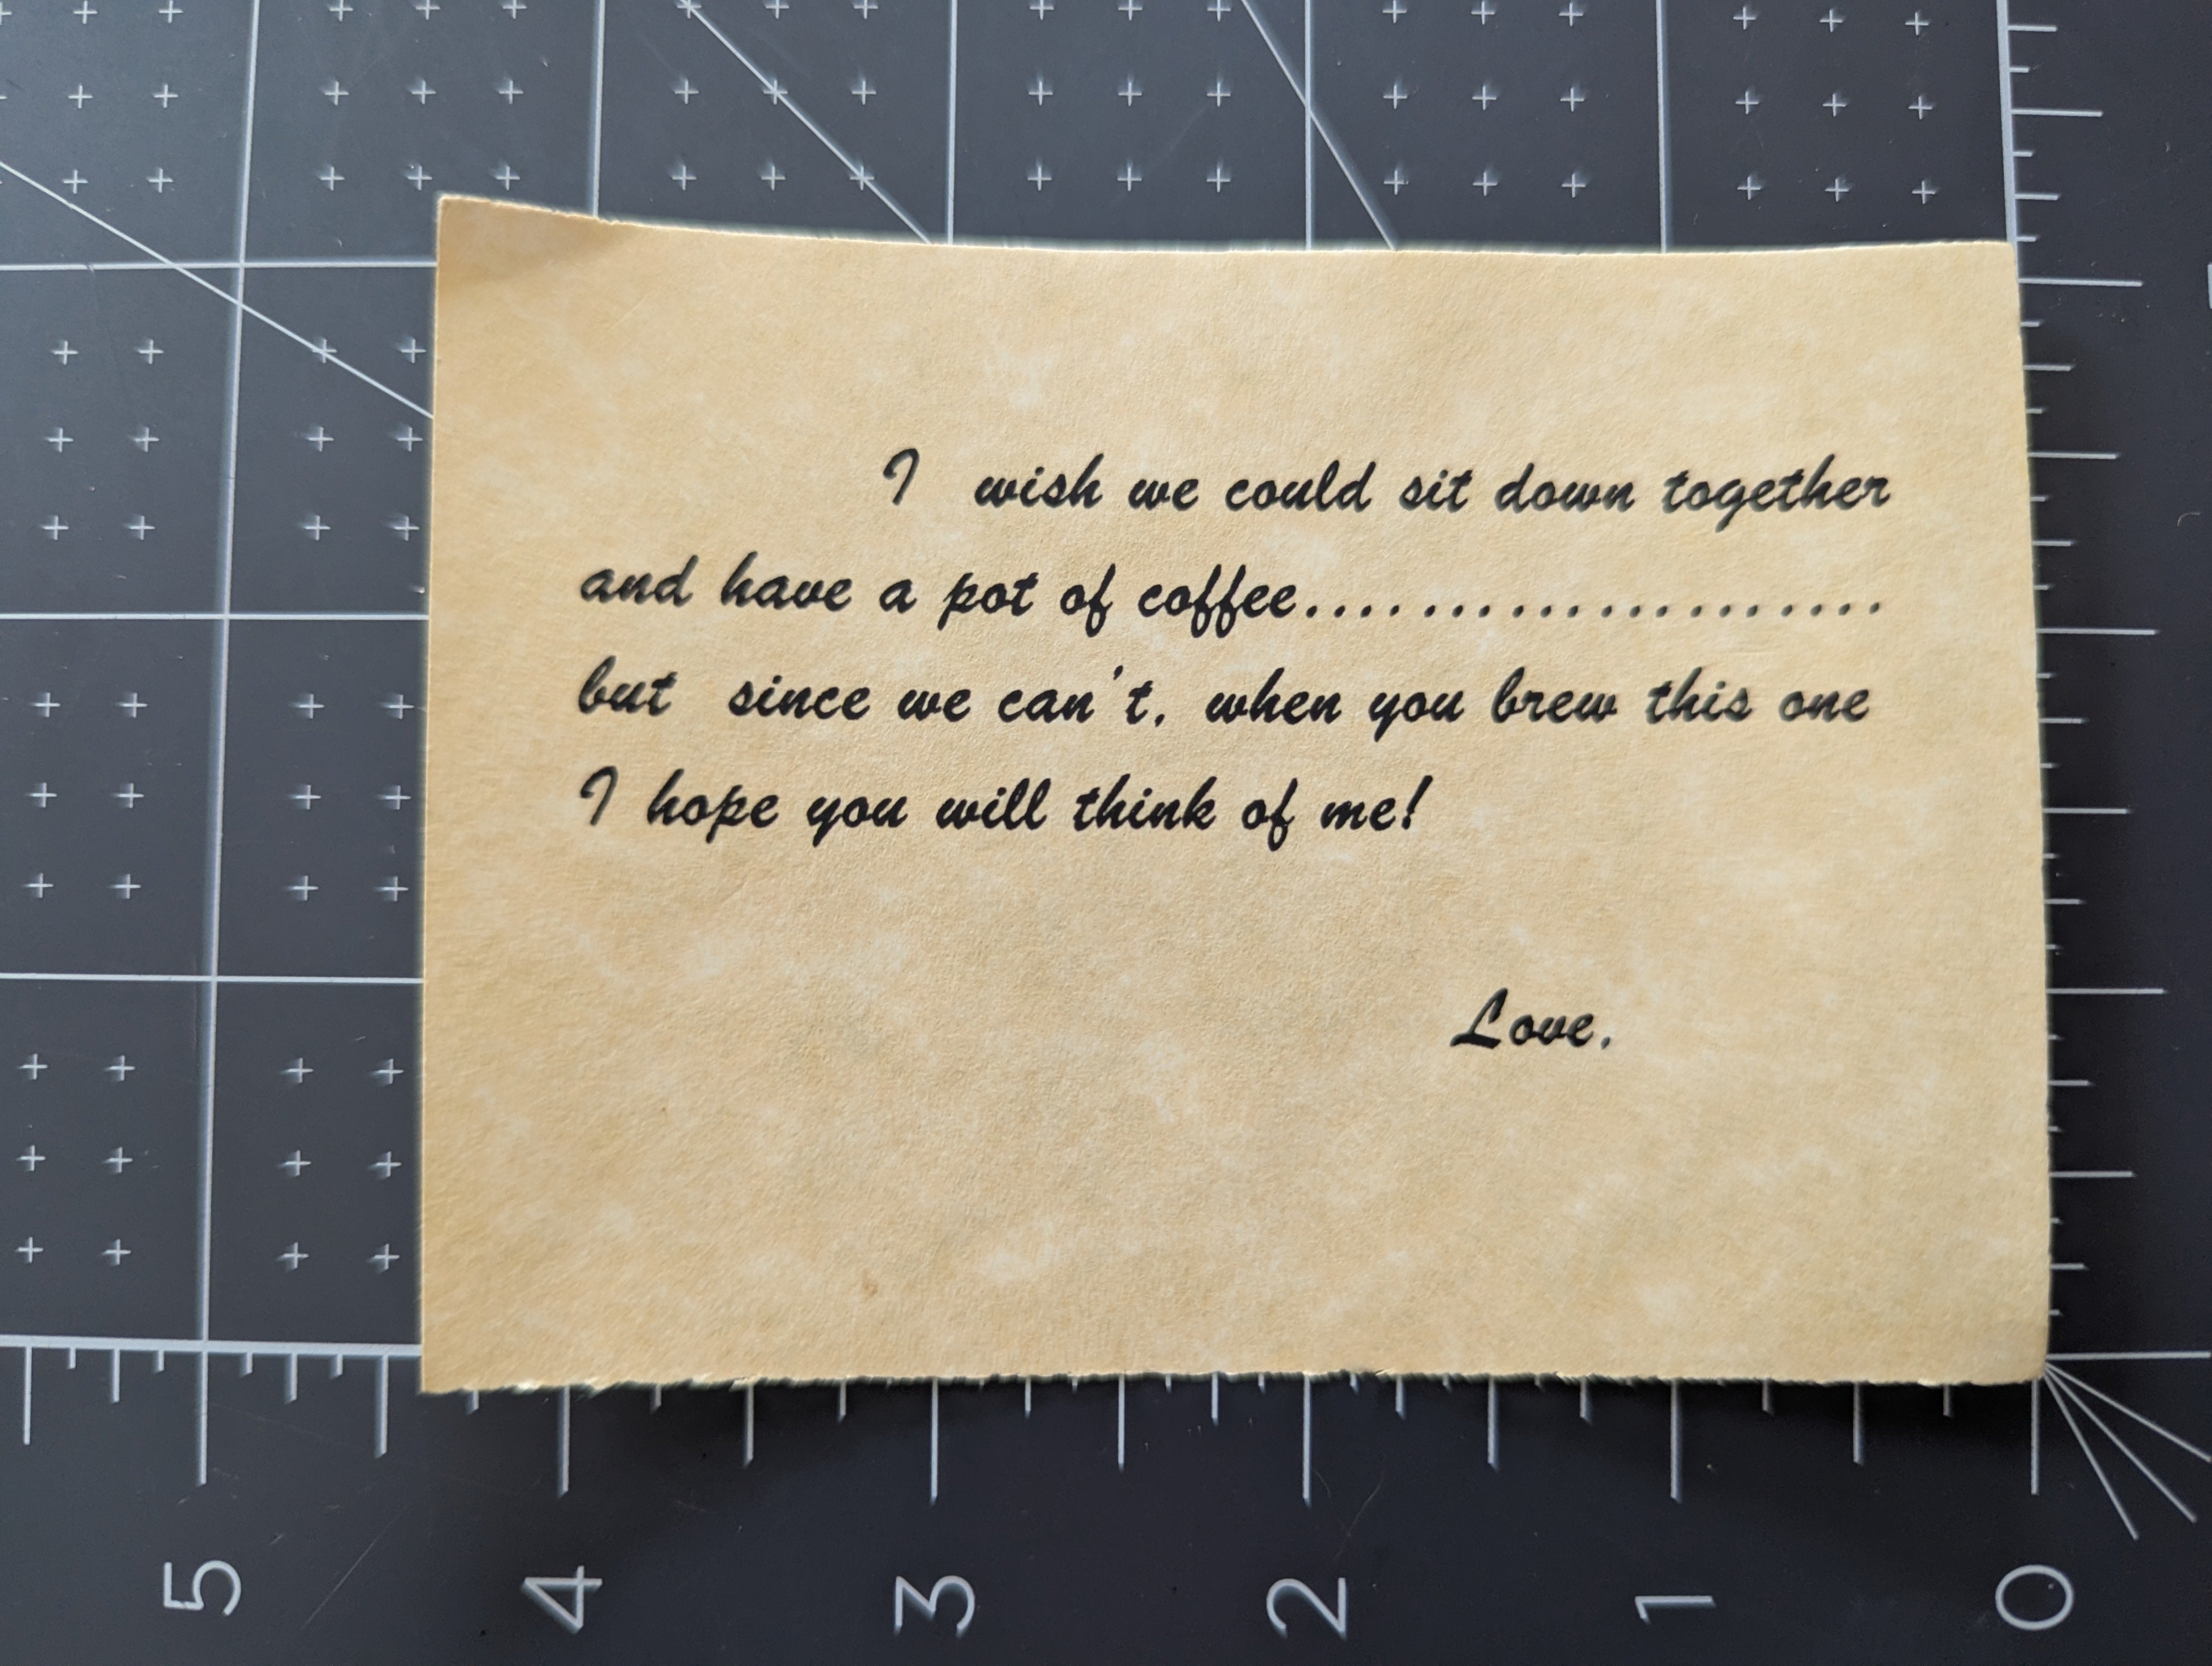 I wish we could sit down together
and have a pot of coffee..............................
but since we can't, when you brew this one
I hope you will think of me!
Love,
5 4 3 2 1 0